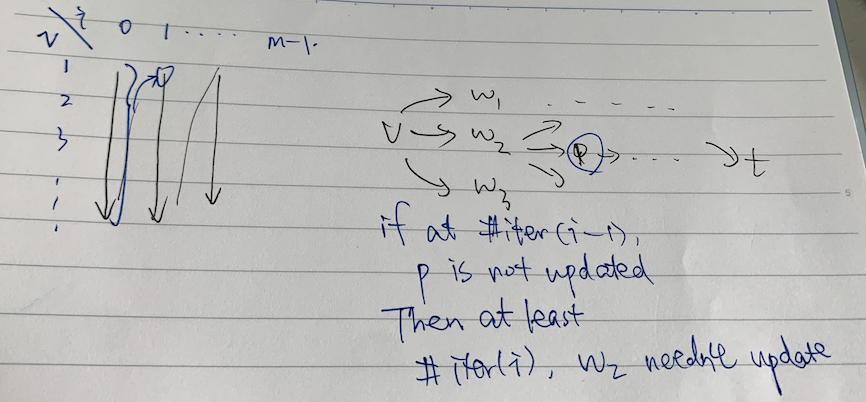 v \ i 0 1 .... m-1.
1
2
3
v → w1 - - - -
v → w2 → p → .... → t
v → w3
if at #iter(i-1),
p is not updated
Then at least
#iter(i), w2 needn't update
5